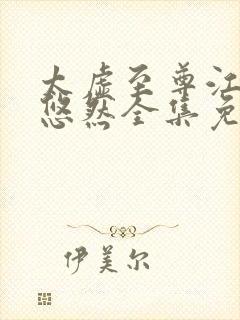 太虚至尊江
悠然全集免
伊美尔